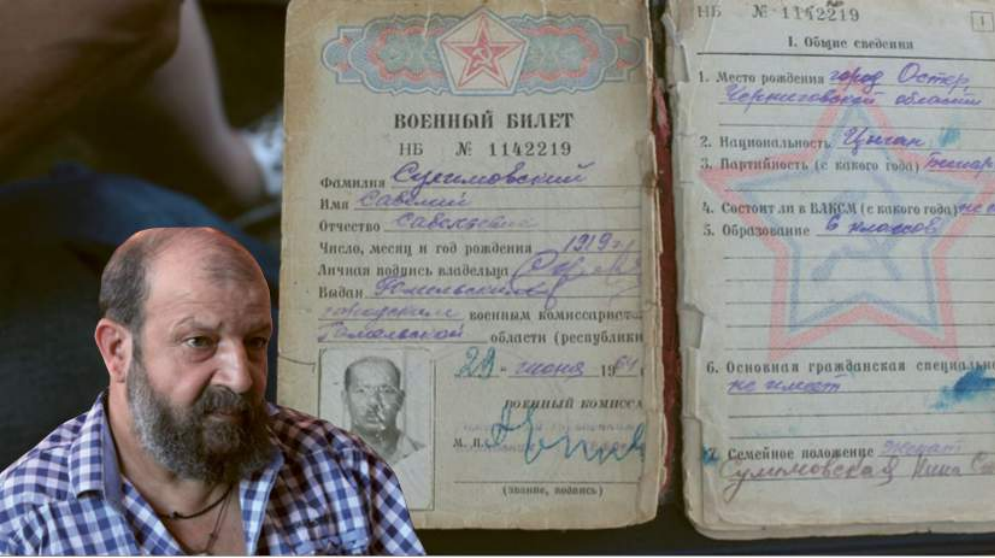 ВОЕННЫЙ БИЛЕТ
НБ № 1142219
Фамилия
Имя Савелий
Отчество Савельевич
Число, месяц и год рождения 1919 г.
Личная подпись владельца
Выдан Гомельским
городским военным комиссариат
Гомельской области (республики
29 июня 19
ВОЕННЫЙ КОМИССА
М. П.
(звание, подпись)
НБ № 1142219
1
I. Общие сведения
1. Место рождения город Остер,
Черниговской области
2. Национальность Цыган
3. Партийность (с какого года)
4. Состоит ли в ВЛКСМ (с какого года)
5. Образование 6 классов
6. Основная гражданская специально
не имеет
7. Семейное положение женат
Нина